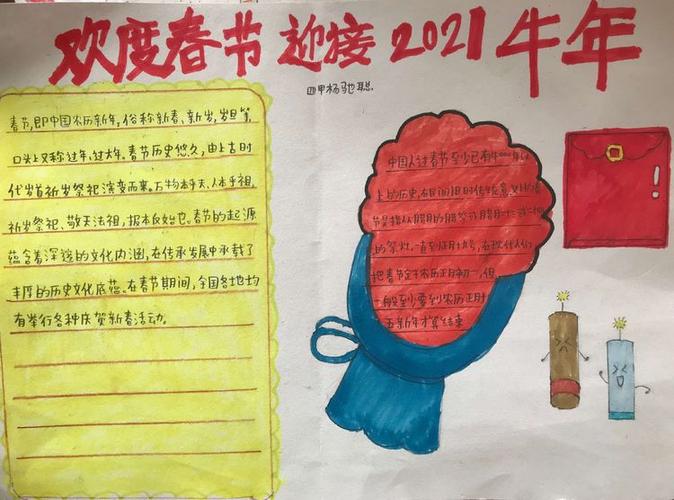 欢度春节 迎接2021牛年
四甲杨驰聪
春节,即中国农历新年,俗称新春、新岁,岁旦等,
口头上又称过年、过大年。春节历史悠久,由上古时
代岁首祈岁祭祀演变而来。万物本乎天、人本乎祖,
祈岁祭祀、敬天法祖,报本反始也。春节的起源
蕴含着深邃的文化内涵,在传承发展中承载了
丰厚的历史文化底蕴。在春节期间,全国各地均
有举行各种庆贺新春活动。
中国人过春节至少已有4000年以
上的历史,在民间
节是指从腊月的腊祭或腊月
的祭灶,一直到正月十
把春节定于农历正月初一,但
一般至少要到农历正月十
五新年才算结束